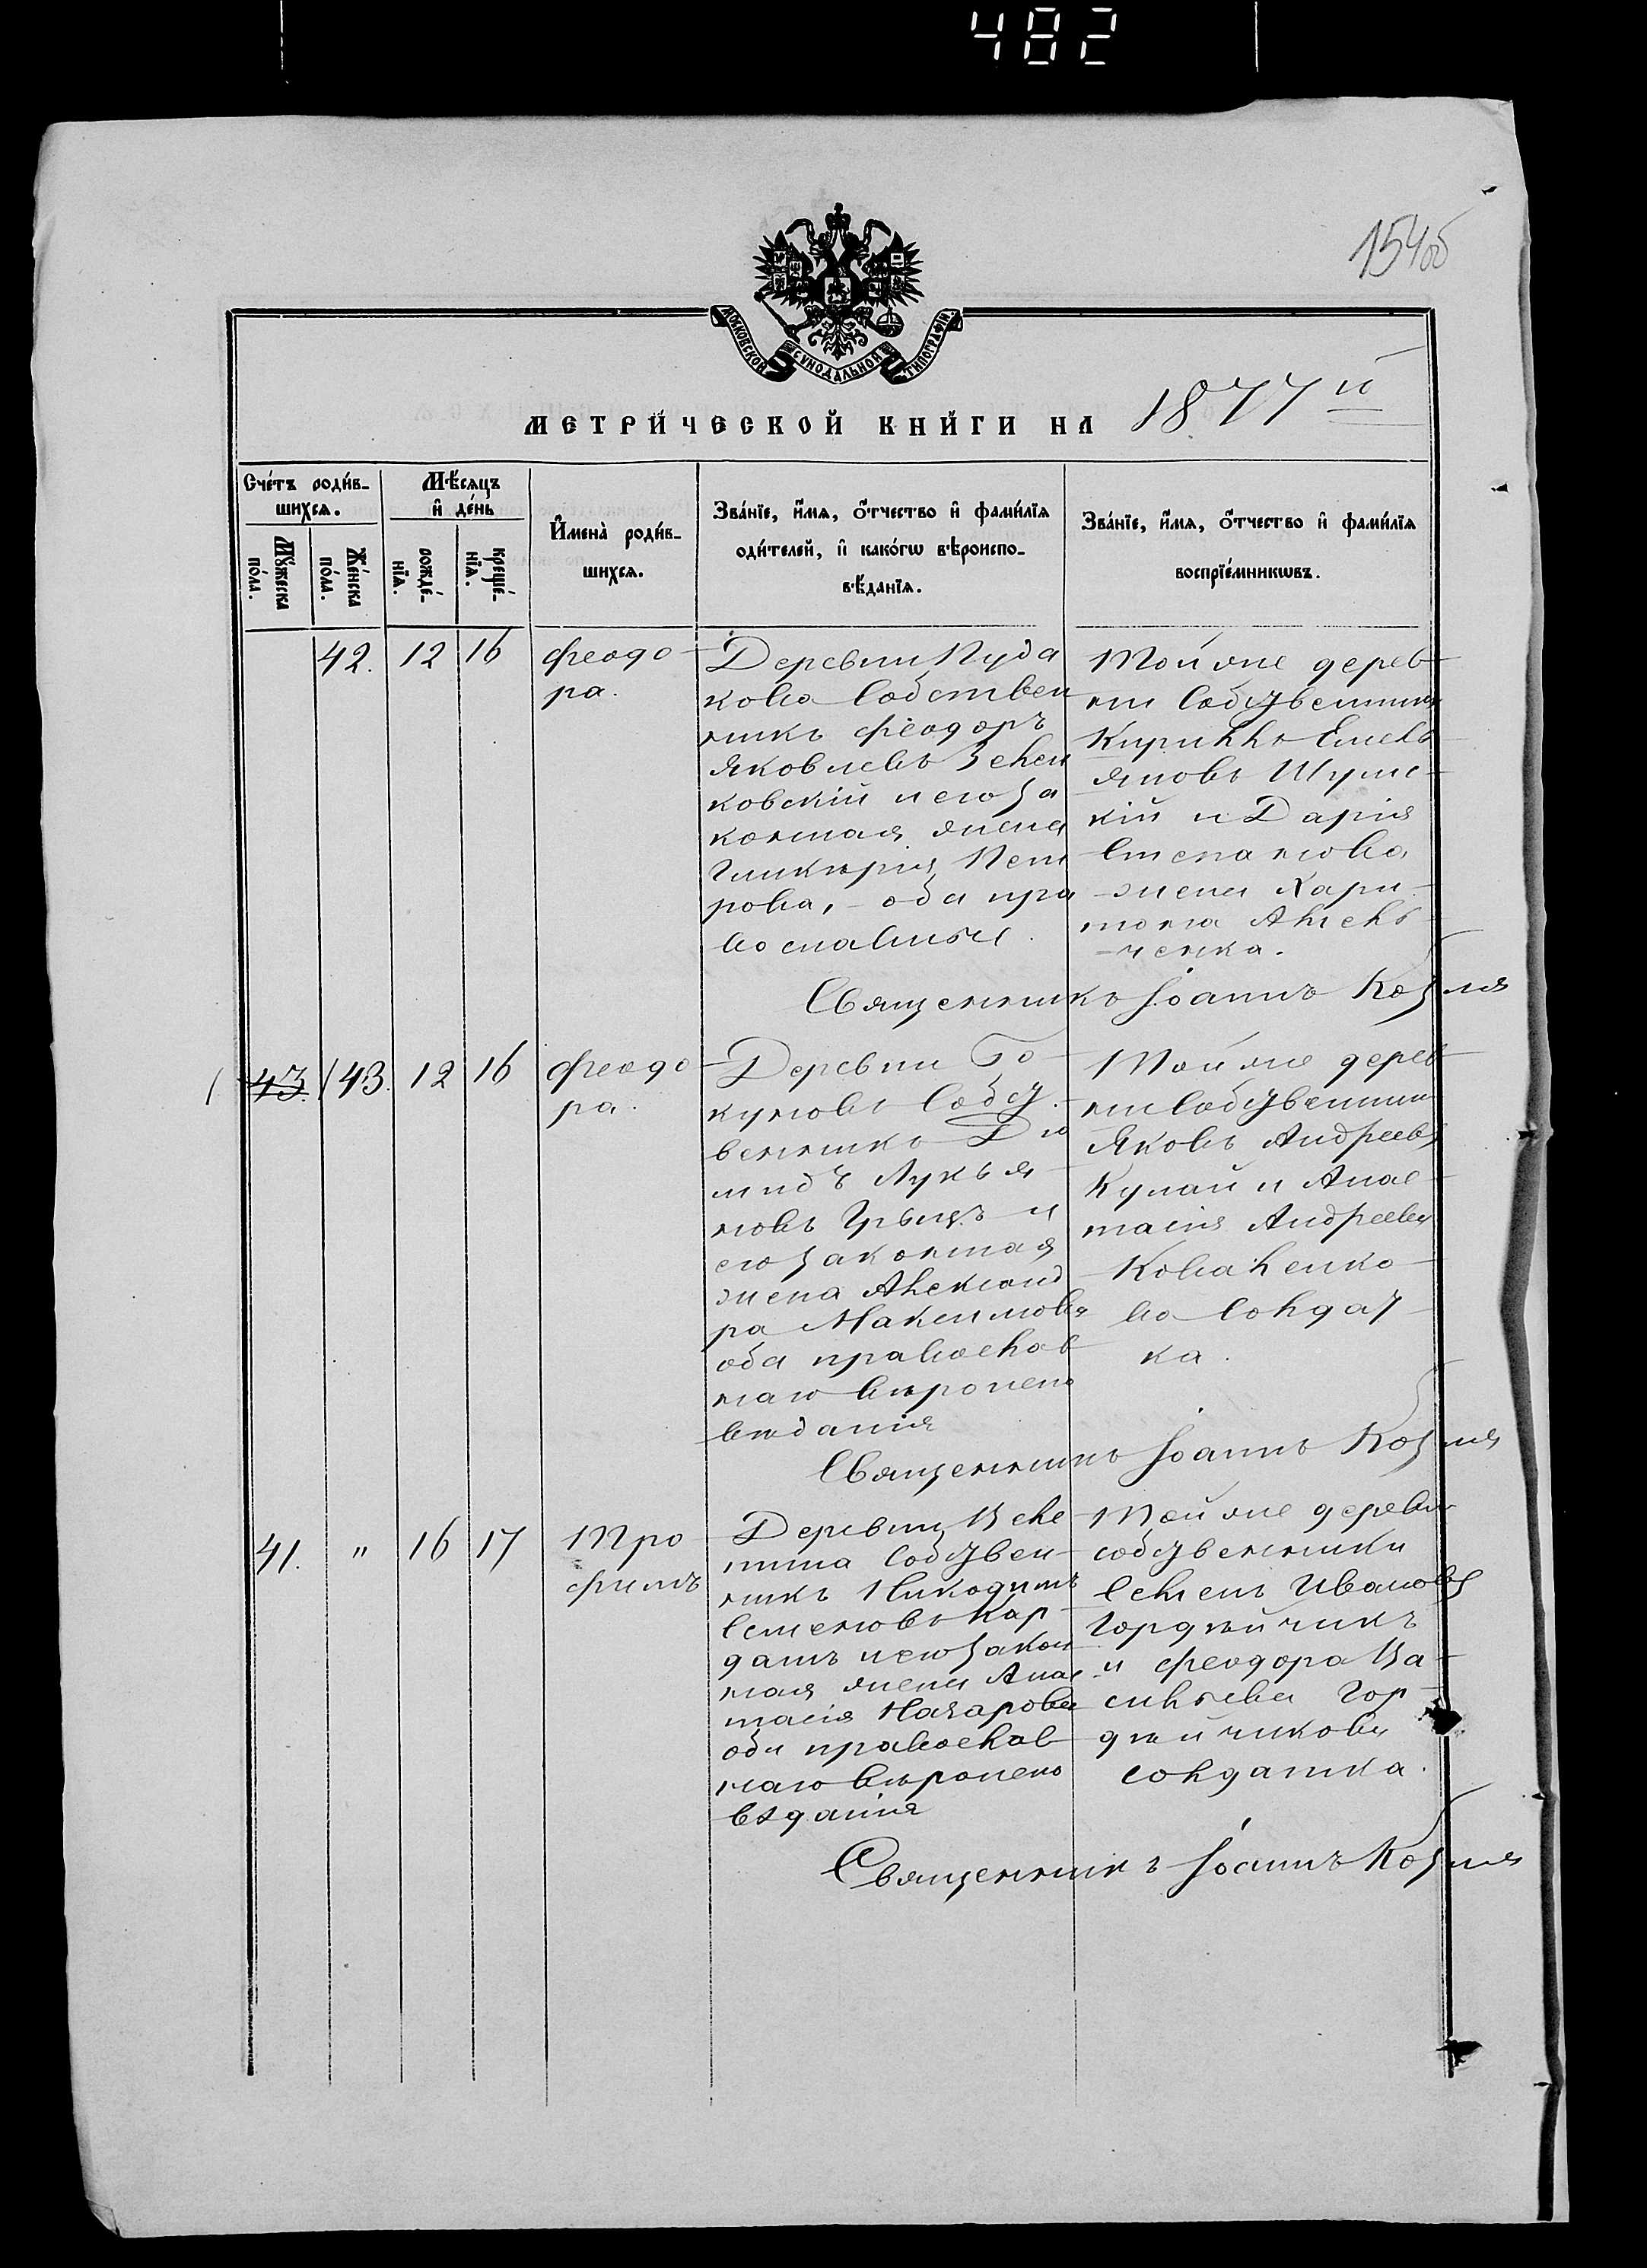 482
154об
МОСКОВСКОЙ СѴНОДАЛЬНОЙ ТИПОГРАФІИ
МЕТРИ́ЧЕСКОЙ КНИ́ГИ НА 1877й
Сче́тъ роди́в-
шихсѧ.
Мꙋ́жеска
по́ла.
Же́нска
по́ла.
Мѣ́сѧцъ
и҆ де́нь
рожде́-
нїѧ.
креще́-
нїѧ.
И҆мена̀ роди́в-
шихсѧ.
Зва́нїе, и҆́мѧ, ѻ҆́тчество и҆ фами́лїѧ
роди́телей, и҆ како́гѡ вѣроиспо-
вѣ́данїѧ.
Зва́нїе, и҆́мѧ, ѻ҆́тчество и҆ фами́лїѧ
воспрїе́мникѡвъ.
42. 12 16
Феодо-
ра.
Деревни Пуда
кова собствен
никъ Феодоръ
Яковлевъ Зелен
ковскій и его за
конная жена
Гликерія Пет
рова, - оба пра
вославные.
Той же дерев-
ни собственники
Кириллъ Емель
яновъ Шумс-
кій и Дарія
Степанова
жена Хари-
тона
-ченка.
Священникъ Іоаннъ Козма
43. 43. 12 16
Феодо-
ра.
Деревни
собст-
венникъ Дио
мидъ Лукья-
новъ и
его законная
жена Александ
ра Максимова
оба православ
наго вѣроиспо
вѣданія
Той же дерев-
ни собственники
Яковъ Андреевъ
Кулай и Анас-
тасія Андреева
Коваленко-
ва солдат-
ка.
Священникъ Іоаннъ Козма
41. " 16 17
Тро
фимъ
Деревни
собствен-
никъ Никодимъ
Семеновъ Кар-
дашъ и его закон
ная жена Анас-
тасія Назарова
оба православ
наго вѣроиспо
вѣданія
Той же деревни
собственники
Семенъ Ивановъ
Гордѣйчикъ
и Феодора Ва-
сильева Гор-
дѣйчикова
солдатка.
Священникъ Іоаннъ Козма